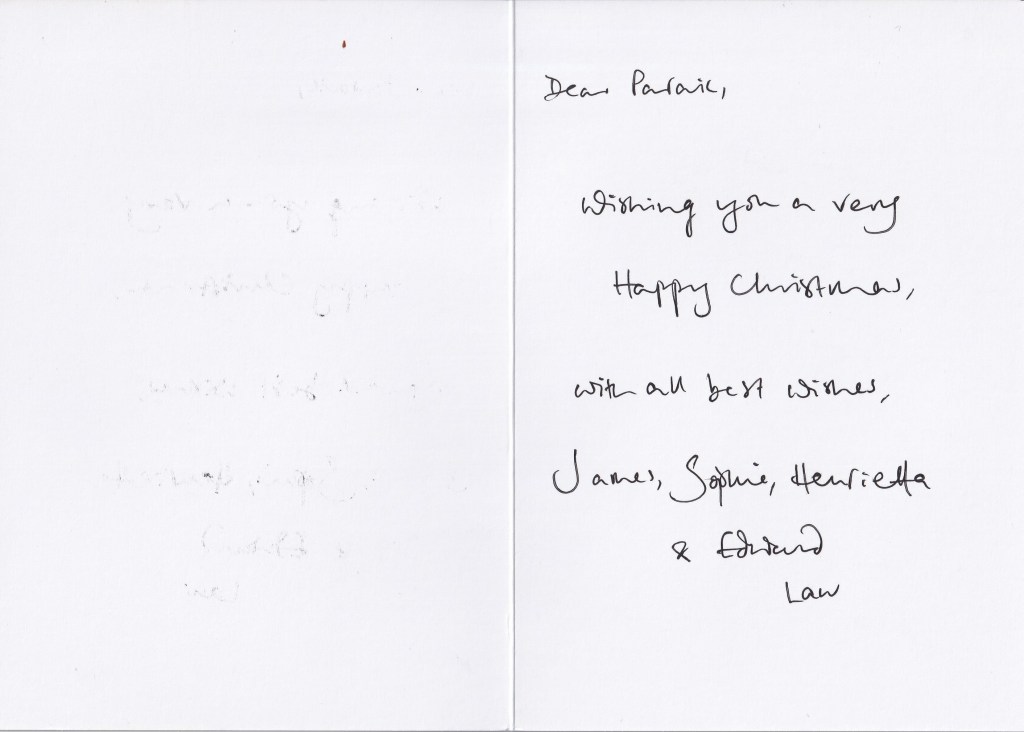 Dear Paraic,
Wishing you a very
Happy Christmas,
with all best wishes,
James, Sophie, Henrietta
& Edward
Law